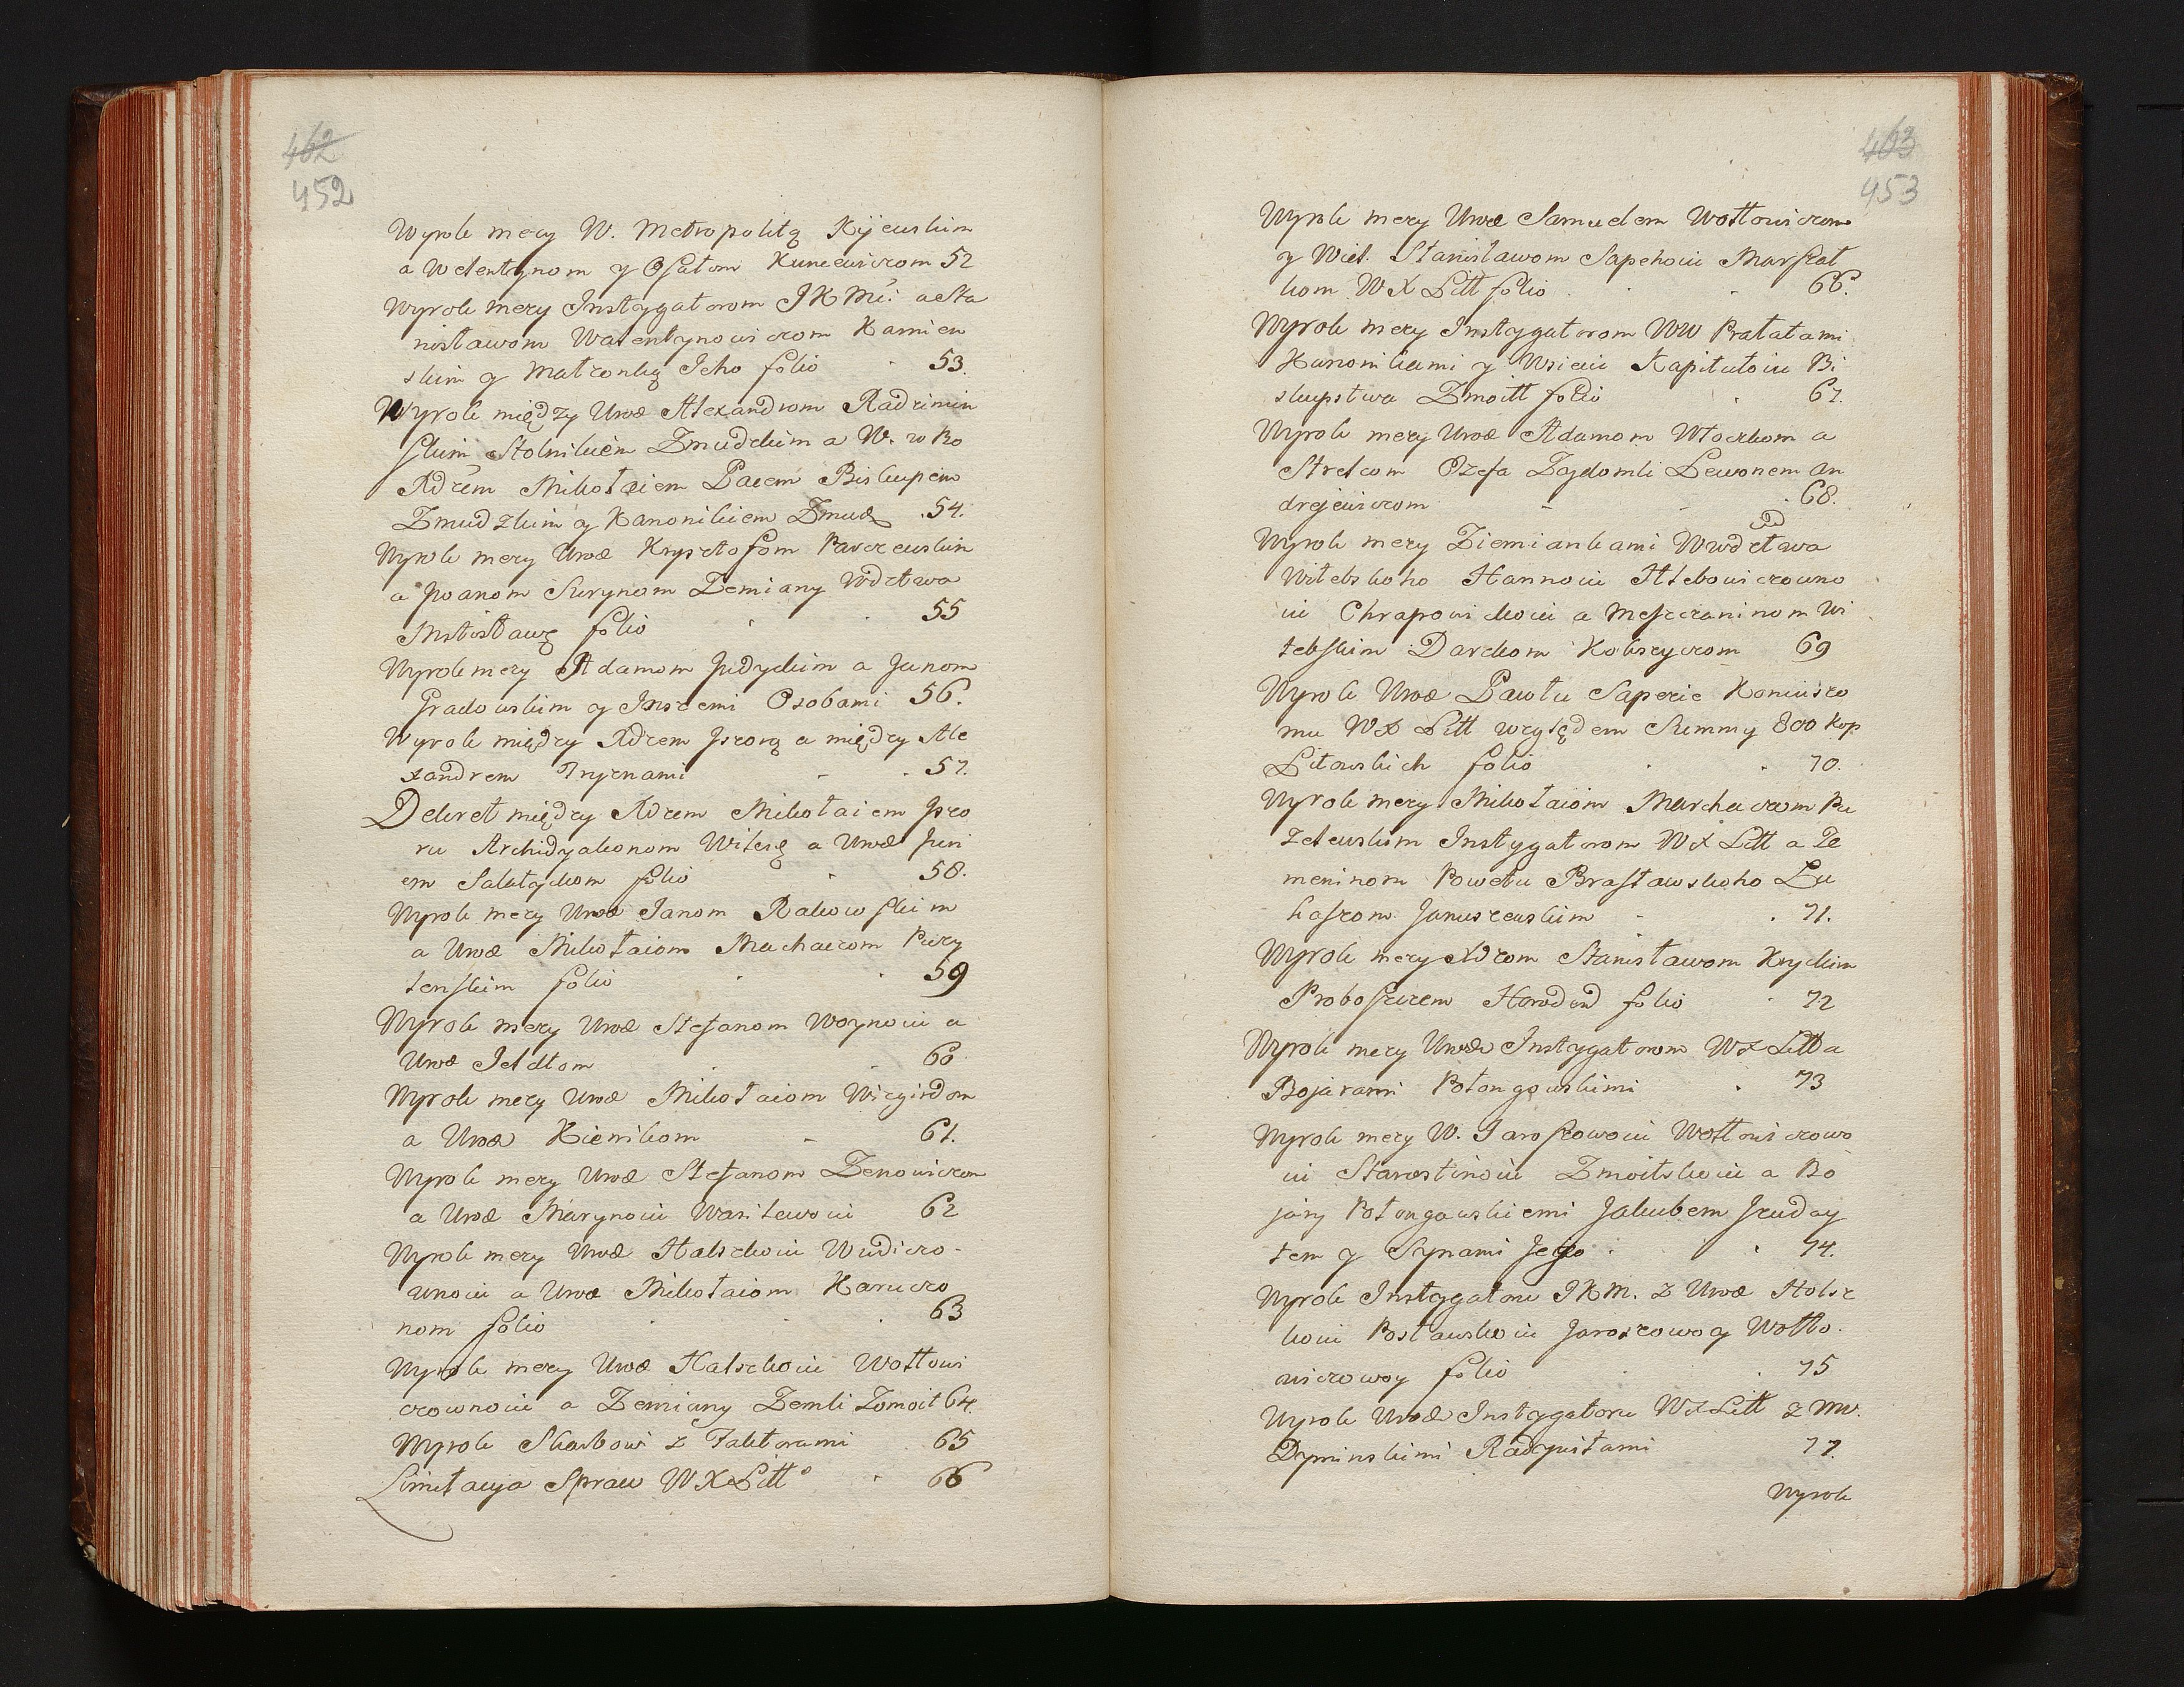 462
452
Wyrok mezy W. Metropolitą Kijewskim
a Welentynom y Osatom Kuncewiczom 52
Wyrok mezy Instygatorom JKMći: a Sta
nisławom Walentynowiczom Kamien
skim y Małzonką Jeho folio 53.
Wyrok między Urod Alexandrom Radzimin
skim Stolnikiem Zmudzkim a W. w Bo
Xdzem Mikołaiem Pacem Biskupem
Zmudzkim y Kanonikiem Zmudz 54.
Wyrok mezy Urod Krysztofom Parczewskim
a Joanom Surynom Zemiany Wdztwa
Mstisławą folio 55
Wyrok mezy Adamom Judyckim a Janom
Gradowskim y Inszemi Osobami 56.
Wyrok między Xdzem Jszorą a między Ale
xandrem Tryzenami 57.
Dekret między Xdzem Mikołaiem Jszo
ru Archidyakonom Wilenę a Urod Jun
em Sałatyckom folio 58.
Wyrok mezy Urod Janom Rakowskim
a Urod Mikołaiom Machaczom Puzy
tenskim folio 59
Wyrok mezy Urod Stefanom Woynoiu a
Urod Jeldtom 60
Wyrok mezy Urod Mikołaiom Wizgirdom
a Urod Kienikom 61.
Wyrok mezy Urod Stefanom Zenowiczom
a Urod Marynoiu Wasilewoiu 62
Wyrok mezy Urod Halszkoiu Wudiczo-
wnoiu a Urod Mikołaiom Haruczo
nom folio 63
Wyrok mezy Urod Halszkoiu Wołłowi
czownoiu a Zemiany Zemli Zomoit 64.
Wyrok Skarbowi z Faktorami 65
Limitacya Spraw W X Litt° 66
463
453
Wyrok mezy Urod Samuelem Wołłowiczom
y Wiel. Stanisławom Sapehoiu Marszał
kom W X Litt folio 66.
Wyrok mezy Instygatorom WW Prałatami
Kanonikami y Wsieiu Kapitułoiu Bi
skupstwa Zmoitt folio 67.
Wyrok mezy Urod Adamom Włockom a
Strelcom Ozefa Zazdomli Lewonem An
drejewiczom 68.
Wyrok mezy Ziemiankami Wwdztwa
Witebskoho Hannoiu Hlebowiczowno
iu Chrapowickoiu a Meszczaninom Wi
tebskim Darckom Kobszyczom 69
Wyrok Urod Pawłu Sapezie Koniuszo
mu W X Litt względem Summy 800 Kop
Litowskich folio 70.
Wyrok mezy Mikołaiom Marchaczom Pu
zelewskim Instygatorom W X Litt a Ze
meninom Powetu Brasławskoho Łu
kaszom Januszewskim 71.
Wyrok mezy Xdzom Stanisławom Kryckim
Proboszczem Horodnd folio 72
Wyrok mezy Urod Instygatorom W X Litt a
Bojarami Potongowskimi 73
Wyrok mezy W. Jaroszowoiu Wołłowiczowo
iu Starostinoiu Zmoitskoiu a Bo
jary Potongowskiemi Jakubem Jzuday
tem y Synami Jego 74.
Wyrok Instygatoru JKM. z Urod Holsz
koiu Postawskoiu Jaroszowoy Wołło.
wiczowoy folio 75
Wyrok Urod Instygatoru W X Litt z Mw.
Dyminskimi Radzywiłami 77.
Wyrok